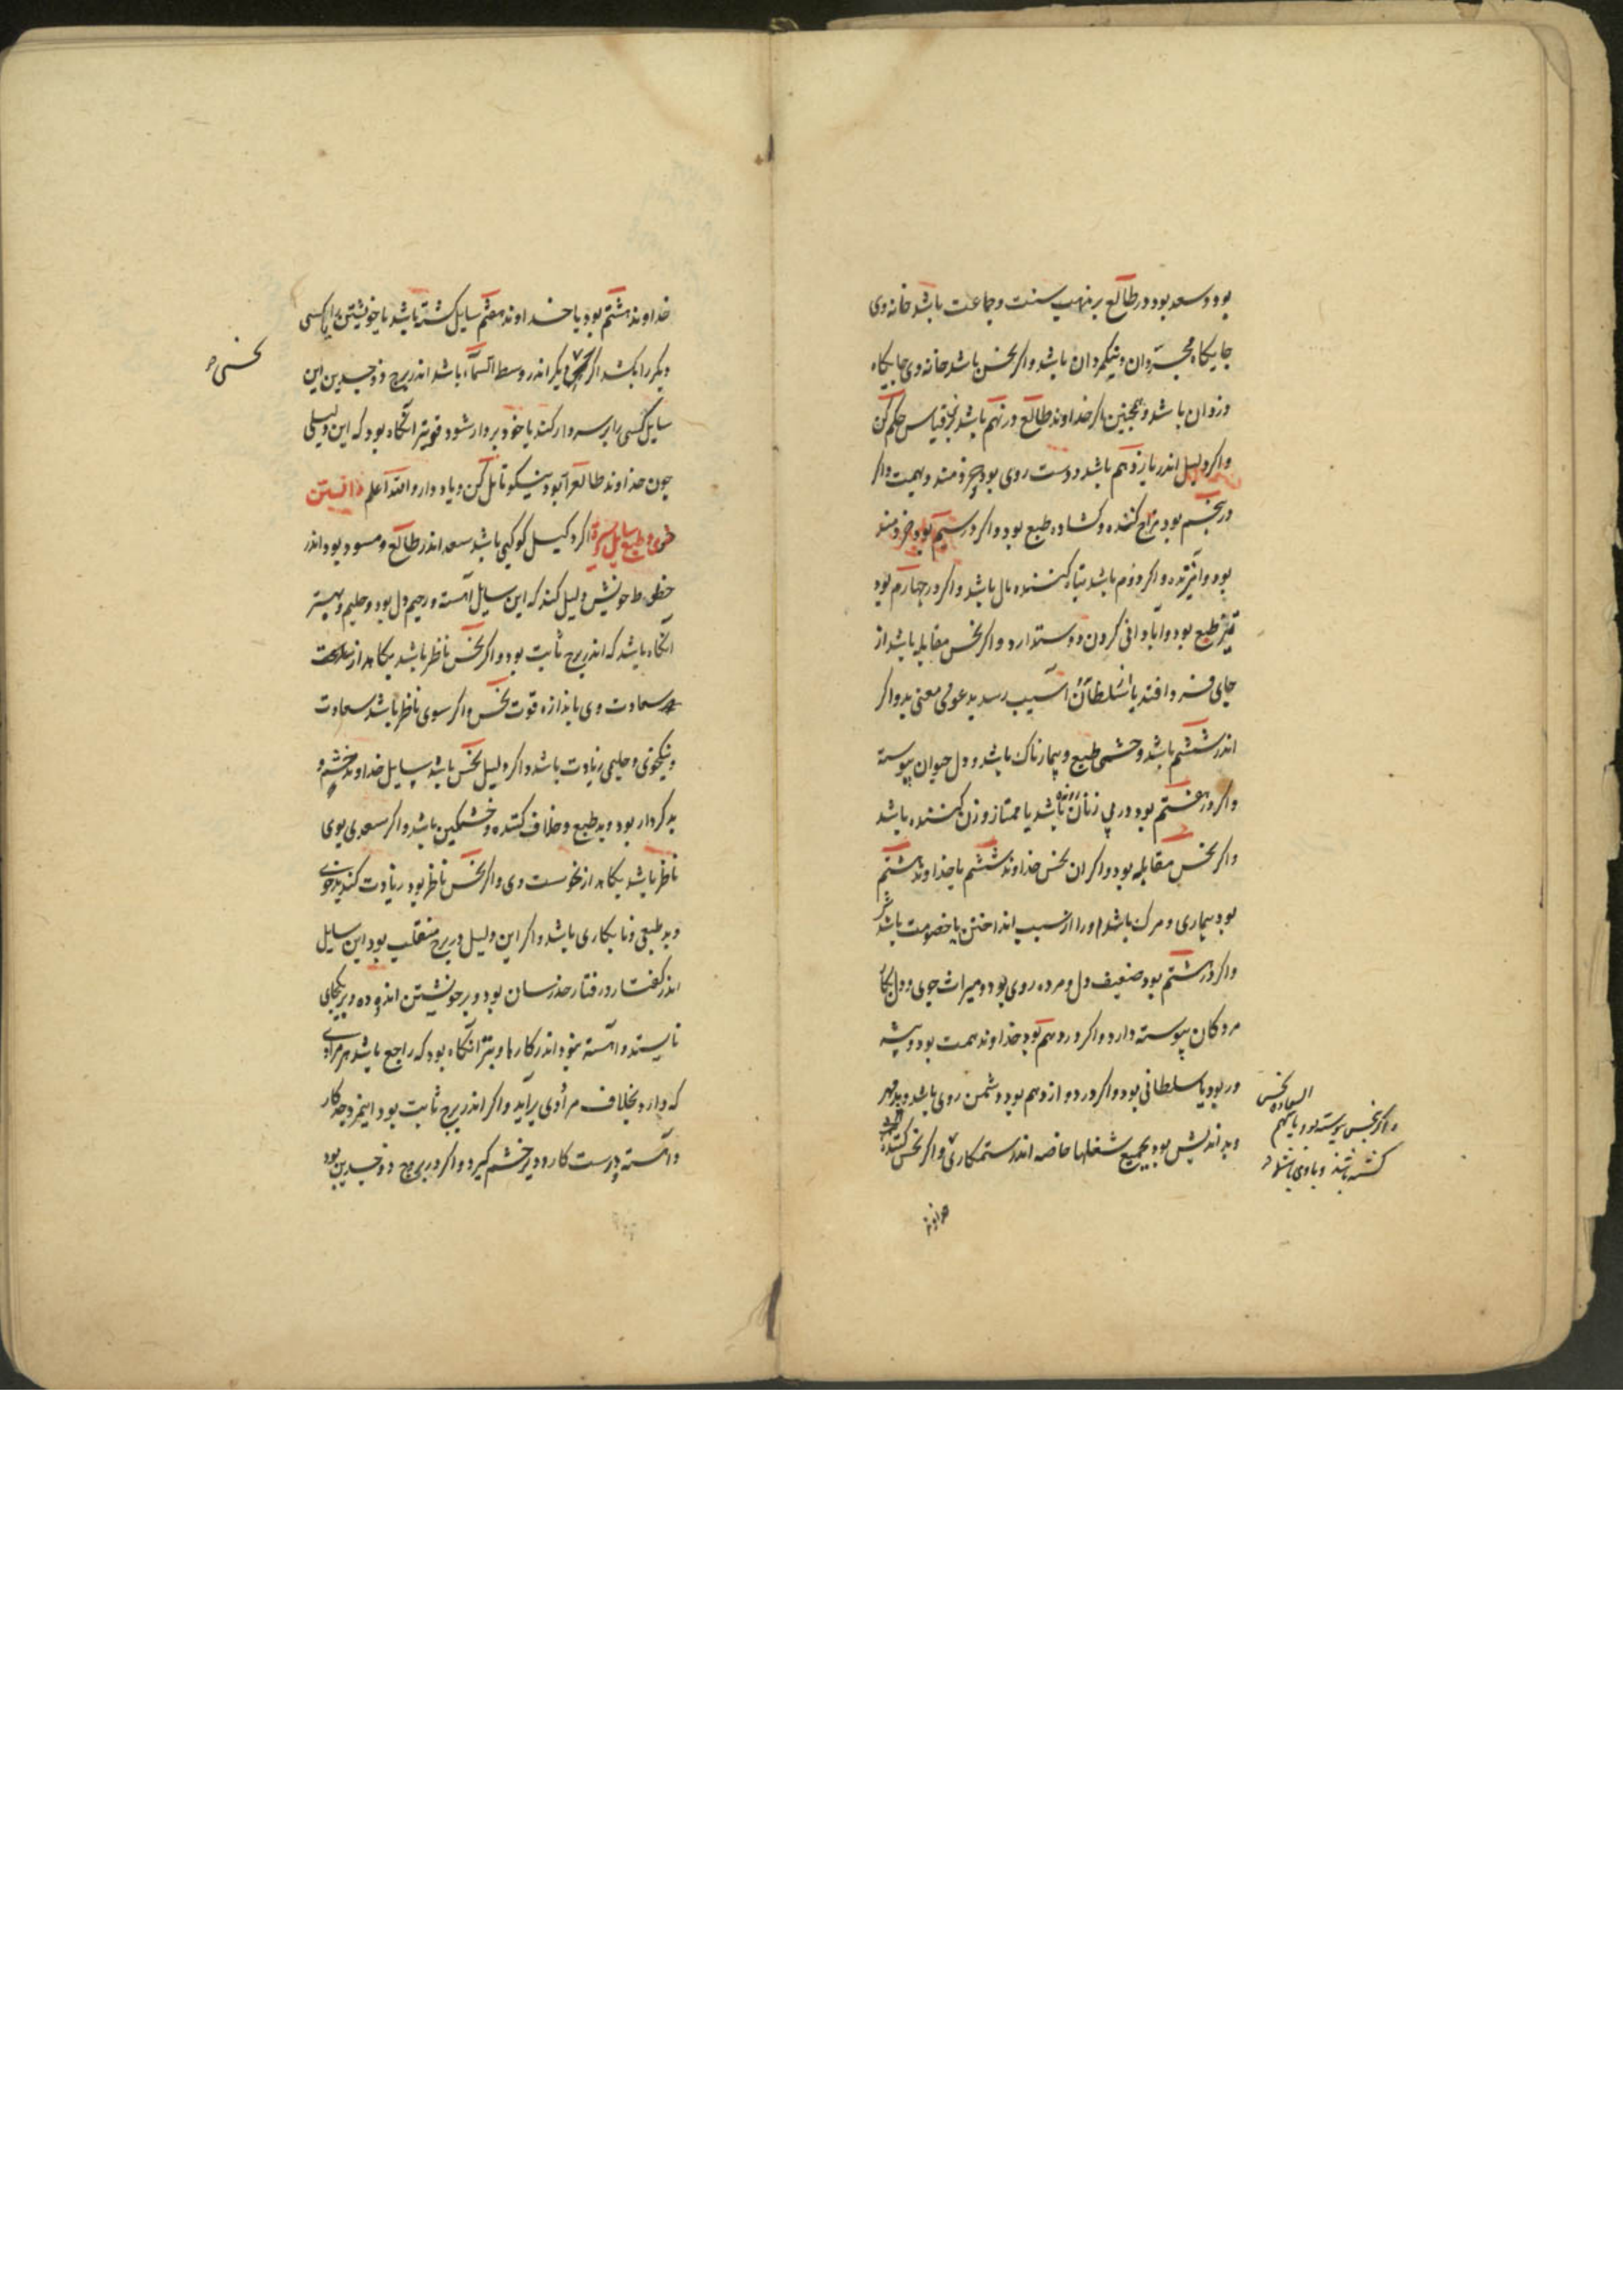 بود و سعد بود در طالع بر مذهب سنت و جماعت باشد خانه وی
جایکاه مجیزوان و نیکمردان باشد و اکر نحس باشد خانه وی جایکاه
دزدان باشد و همجنین اکر خداوند طالع در نهم باشد برین قیاس حکم کن
و اکر دلیل اندر یازدهم باشد دوست روی بود و خردمند و بهمیت و اکر
در پنجم بود مزاح کننده و کشاده طبع بود و اکر در سیم بود خردمند
بود و آمیزنده و اکر دوم باشد تباه کننده مال باشد و اکر در جهارم بود
تیز طبع بود و آبادانی کردن دوستدارد و اکر نحس مقابله باشد از
جای فرو افتد یا از سلطان آسیب رسد بدعوی بی معنی بد و اکر
اندر ششم باشد وحشی طبع و بیمارناک باشد و دل حیوان پیوسته
و اکر در هفتم بود در پی زنان باشد یا ممتاز و زن کننده باشد
و اکر نحس مقابله بود و اکر ان نحس خداوند ششم یا خداوند هشتم
بود بیماری و مرک باشد او را از سبب انداختن یا خصومت باشد
و اکر در هشتم بود ضعیف دل و مرده روی بود و میراث جوی و دل بکار
مردکان پیوسته دارد و اکر در دهم بود خداوند همت بود و پیشه
ور بود یا سلطانی بود و اکر در دوازدهم بود دشمن روی باشد و بد مهر
و بد اندیش بود بجمیع شغلها خاصه اندر ستمکاری و اکر نحس کننده
السعاده نحس
و اکر نحس پیوسته بود با سهم
کشته باشد و یا وی باشد
خداوند
خداوند هشتم بود یا خداوند هفتم سایل کشته باشد یا خویشتن یا کسی
دیکر را بکشد اکر نحس دیکر اندر وسط السماء باشد اندر برج ذو جسدین این
نحسی
سایل کسی را بر سر دار کند یا خود بر دار شود قویتر آنکاه بود که این دلیلی
جون خداوند طالع را بود نیکو تامل کن و یاد دار و الله اعلم دانستن
خوی و طبع سایل اکر دلیل کوکبی باشد سعد اندر طالع و مسعود بود اندر
حظوظ خویش دلیل کند که این سایل آهسته و رحیم دل بود و حلیم و بهتر
آنکاه باشد که اندر برج ثابت بود و اکر نحس ناظر باشد بکاهد از
سعادت وی باندازه قوت نحس و اکر سوی ناظر باشد سعادت
و نیکخوی و حلیمی زیادت باشد و اکر دلیل نحس باشد سایل خداوند خشم و
بد کردار بود و بد طبع و خلاف کننده و خشمکین باشد و اکر سعدی بوی
ناظر باشد بکاهد از نحوست وی و اکر نحس ناظر بود زیادت کند بدخوی
و بد طبعی و نابکاری باشد و اکر این دلیل در برج منقلب بود این سایل
اندر کفتار و رفتار حذرسان بود و بر خویشتن اندوده و بر یکجای
نایستد و آهسته بنود اندر کارها و بتر آنکاه بود که راجع باشد هر مرادی
که دارد بخلاف مرادی برآید و اکر اندر برج ثابت بود اینمرد جد کار
و آهسته و درست کار و دیر خشم کیرد و اکر در برج ذو جسدین بود